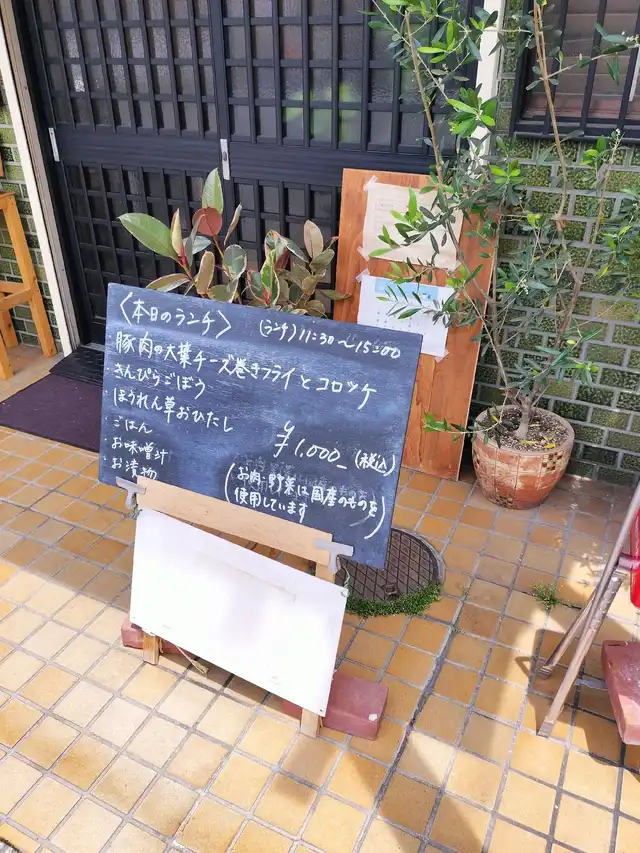 〈本日のランチ〉 (ランチ) 11:30〜15:00
・豚肉の大葉チーズ巻きフライとコロッケ
・きんぴらごぼう
・ほうれん草おひたし
・ごはん
・お味噌汁
・お漬物
¥1,000- (税込)
(お肉・野菜は国産のものを
使用しています)